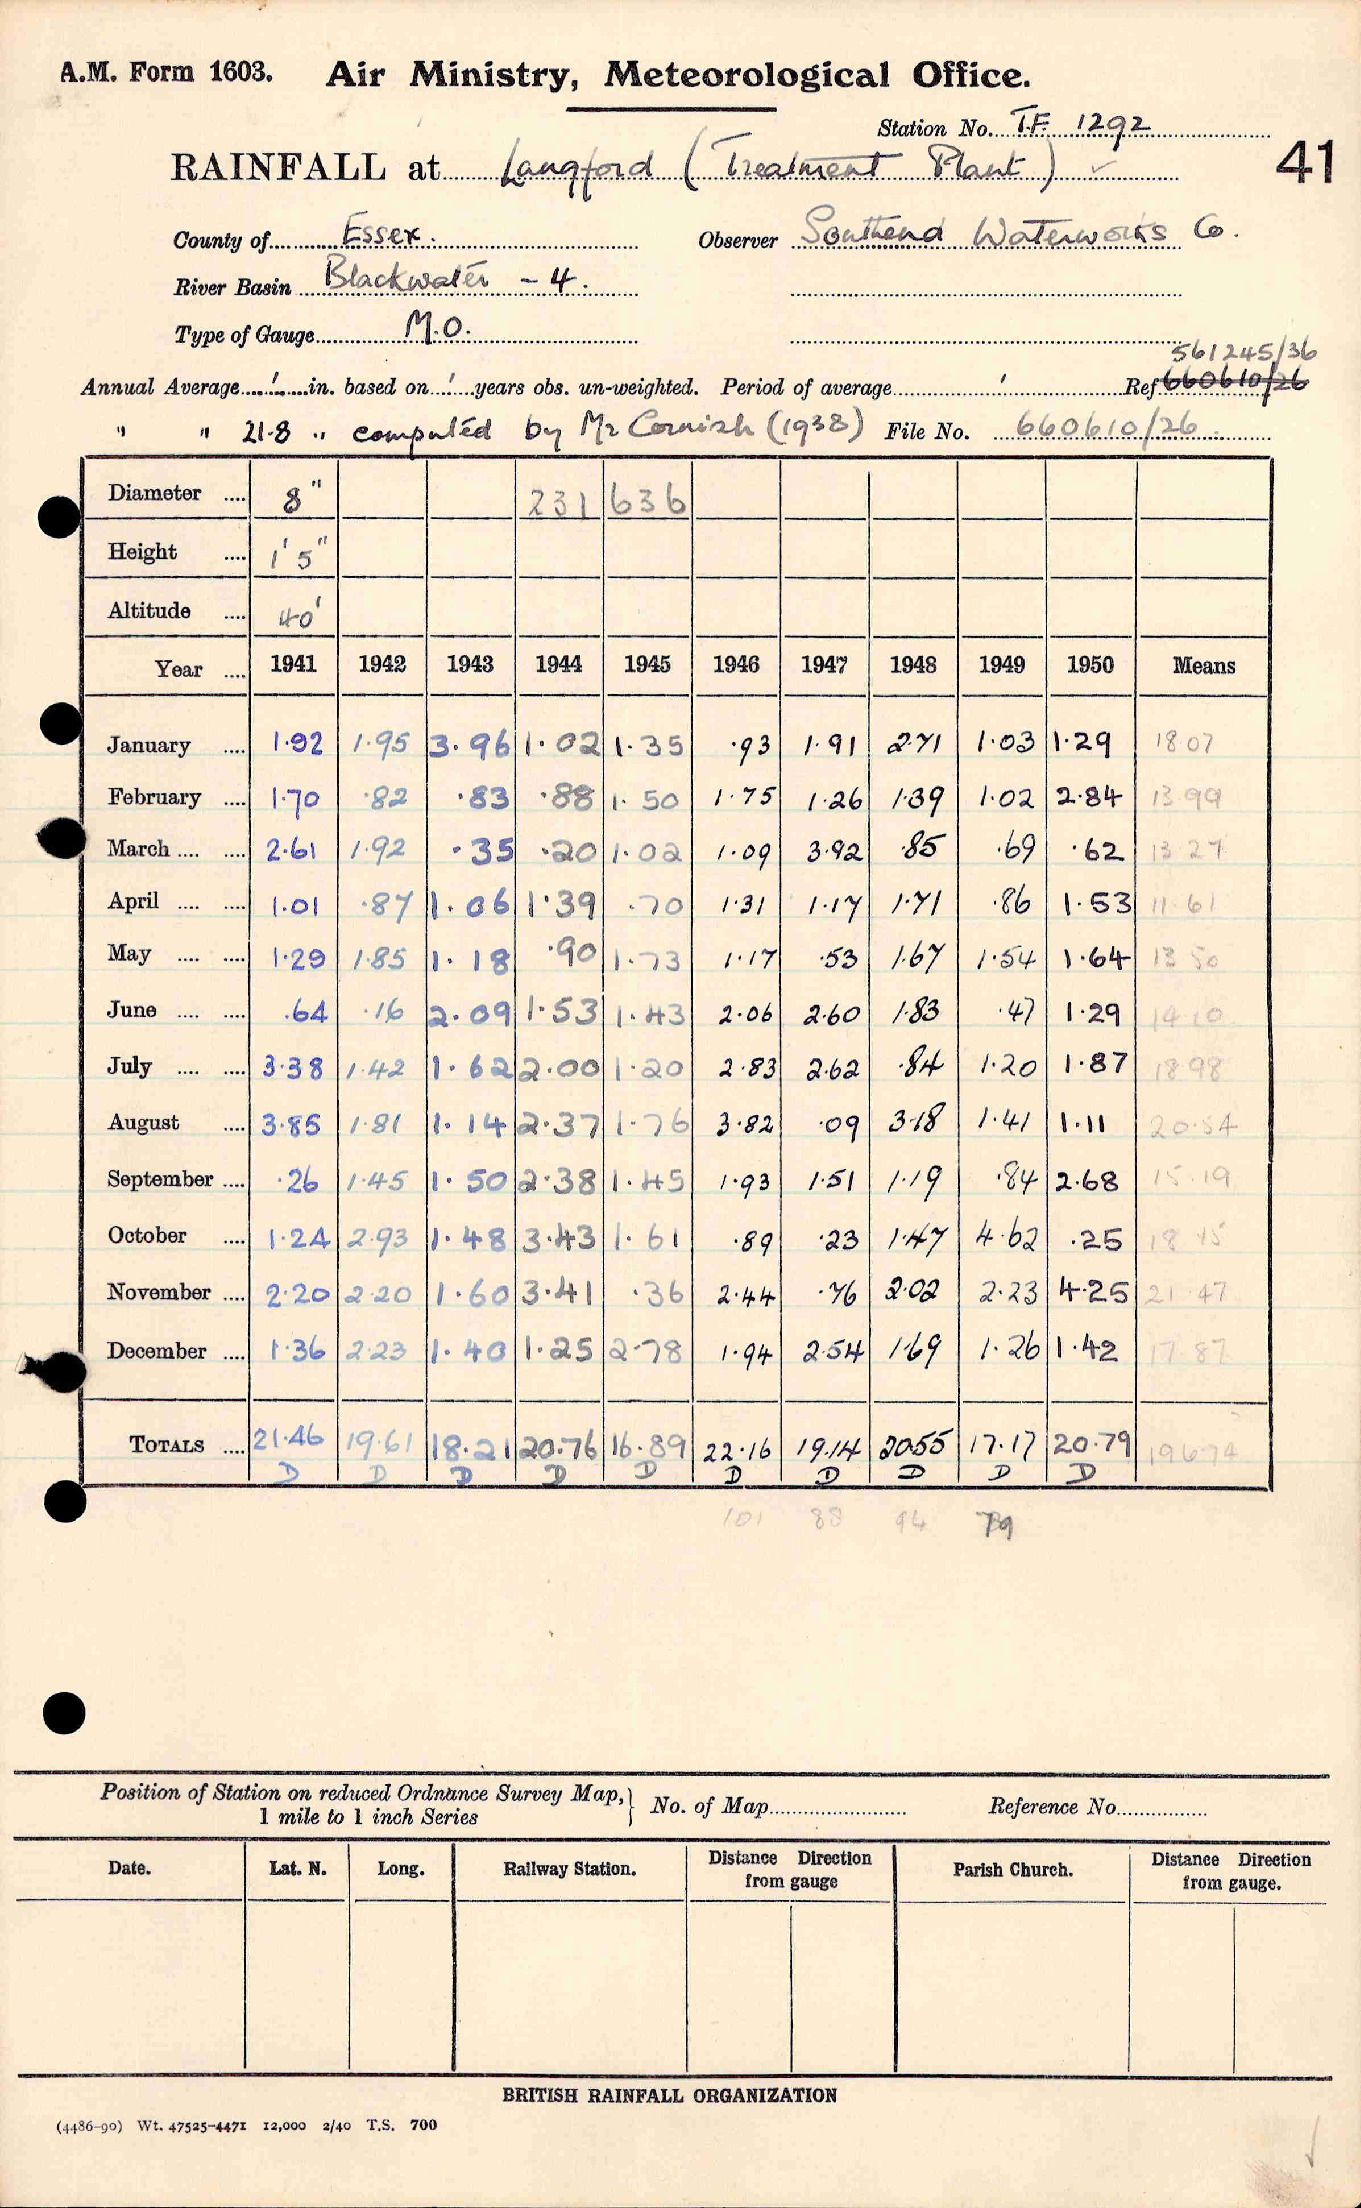 A.M. Form 1603. Air Ministry, Meteorological Office.
Station No. T.F. 1292
RAINFALL at Langford (Treatment Plant) ✓ 41
County of Essex. Observer Southend Waterworks Co.
River Basin Blackwater - 4.
Type of Gauge M.O.
561245/36
Annual Average in. based on years obs. un-weighted. Period of average Ref 660610/26
" " 21.8 " computed by Mr Cornish (1938) File No. 660610/26
Diameter 8" 231 636
Height 1' 5"
Altitude 40'
Year 1941 1942 1943 1944 1945 1946 1947 1948 1949 1950 Means
January 1.92 1.95 3.96 1.02 1.35 .93 1.91 2.71 1.03 1.29 18 07
February 1.70 .82 .83 .88 1.50 1.75 1.26 1.39 1.02 2.84 13 99
March 2.61 1.92 .35 .20 1.02 1.09 3.92 .85 .69 .62 13 27
April 1.01 .87 1.06 1.39 .70 1.31 1.17 1.71 .86 1.53 11 61
May 1.29 1.85 1.18 .90 1.73 1.17 .53 1.67 1.54 1.64 13 50
June .64 .16 2.09 1.53 1.43 2.06 2.60 1.83 .47 1.29 14 10
July 3.38 1.42 1.62 2.00 1.20 2.83 2.62 .84 1.20 1.87 18 98
August 3.85 1.81 1.14 2.37 1.76 3.82 .09 3.18 1.41 1.11 20.54
September .26 1.45 1.50 2.38 1.45 1.93 1.51 1.19 .84 2.68 15.19
October 1.24 2.93 1.48 3.43 1.61 .89 .23 1.47 4.62 .25 18 15
November 2.20 2.20 1.60 3.41 .36 2.44 .76 2.02 2.23 4.25 21.47
December 1.36 2.23 1.40 1.25 2.78 1.94 2.54 1.69 1.26 1.42 17 87
TOTALS 21.46 19.61 18.21 20.76 16.89 22.16 19.14 20.55 17.17 20.79 196.74
D D D D D D D D D D
101 88 94 79
Position of Station on reduced Ordnance Survey Map, 1 mile to 1 inch Series No. of Map Reference No.
Date. Lat. N. Long. Railway Station. Distance Direction from gauge Parish Church. Distance Direction from gauge.
BRITISH RAINFALL ORGANIZATION
(4486-90) Wt. 47525-4471 12,000 2/40 T.S. 700